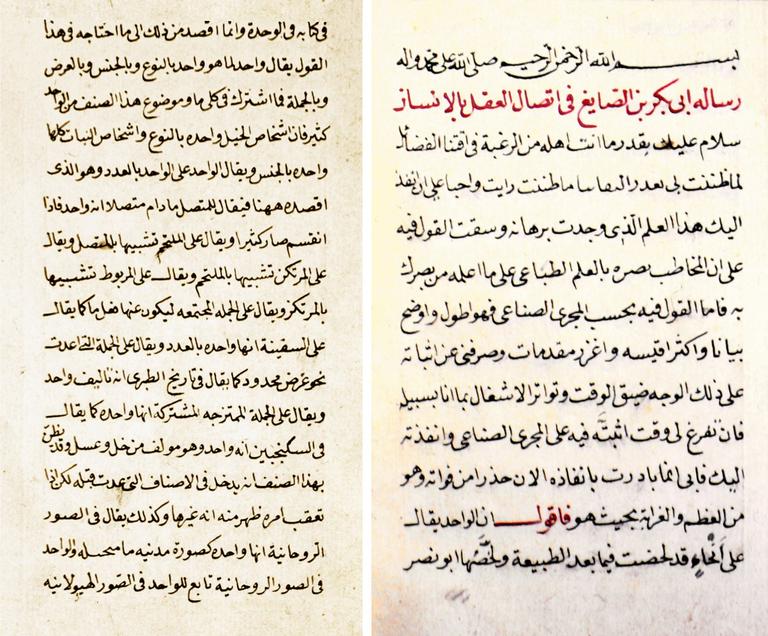 بسم الله الرحمن الرحيم صلى الله على محمد واله
رساله ابى بكر بن الصايغ فى اتصال العقل بالانسان
سلام عليك بقدر ما انت اهله من الرغبة فى اقتنا الفضائل
لما ظننت بى بعد ما ظننت رايت واجبا على ان انفذ
اليك هذا العلم الذى وجدت برهانه وسقت القول فيه
على ان المخاطب بصره بالعلم الطباعى على ما اعلمه من بصرك
به فاما القول فيه بحسب المجرى الصناعى فهو اطول واوضح
بيانا واكثر اقيسه واغزر مقدمات وصرفنى عن اثباته
على ذلك الوجه ضيق الوقت وتواتر الاشغال بما انا بسبيله
فان تفرغ لى وقت اثبته فيه على المجرى الصناعى وانفذته
اليك فانى انما بادرت بانفاذه الان حذرا من فواته وهو
من العظم والغرابة بحيث هو فاقول ان الواحد يقال
على انحاء قد لخصت فيما بعد الطبيعة ولخصها ابو نصر
فى كتابه فى الوحدة وانما اقصد من ذلك الى ما احتاجه فى هذا
القول يقال واحد لما هو واحد بالنوع وبالجنس وبالعرض
وبالجملة فما اشترك فى كلى ما وموضوع هذا الصنف من الواحد
كثير فان اشخاص الخيل واحده بالنوع واشخاص النبات كلها
واحده بالجنس ويقال الواحد على الواحد بالعدد وهو الذى
اقصده ههنا فيقال للمتصل ما دام متصلا انه واحد فاذا
انقسم صار كثيرا ويقال على الملتحم تشبيها بالمتصل ويقال
على المرتكز تشبيها بالملتحم ويقال على المربوط تشبيها
بالمرتكز ويقال على الجملة المجتمعه ليكون عنها فعل ما كما يقال
على السفينة انها واحده بالعدد ويقال على الجملة التى اعدت
نحو غرض محدود كما يقال فى تاريخ الطبرى انه تاليف واحد
ويقال على الجملة الممتزجه المشتركة انها واحده كما يقال
فى السكنجبين انه واحد وهو مولف من خل وعسل وقد يظن
بهذا الصنف انه يدخل فى الاصناف التى عدت قبله لكن اذا
تعقب امره ظهر منه انه غيرها وكذلك يقال فى الصور
الروحانية انها واحده كصورة مدنيه ما متخيله والواحد
فى الصور الروحانية تابع للواحد فى الصور الهيولانيه